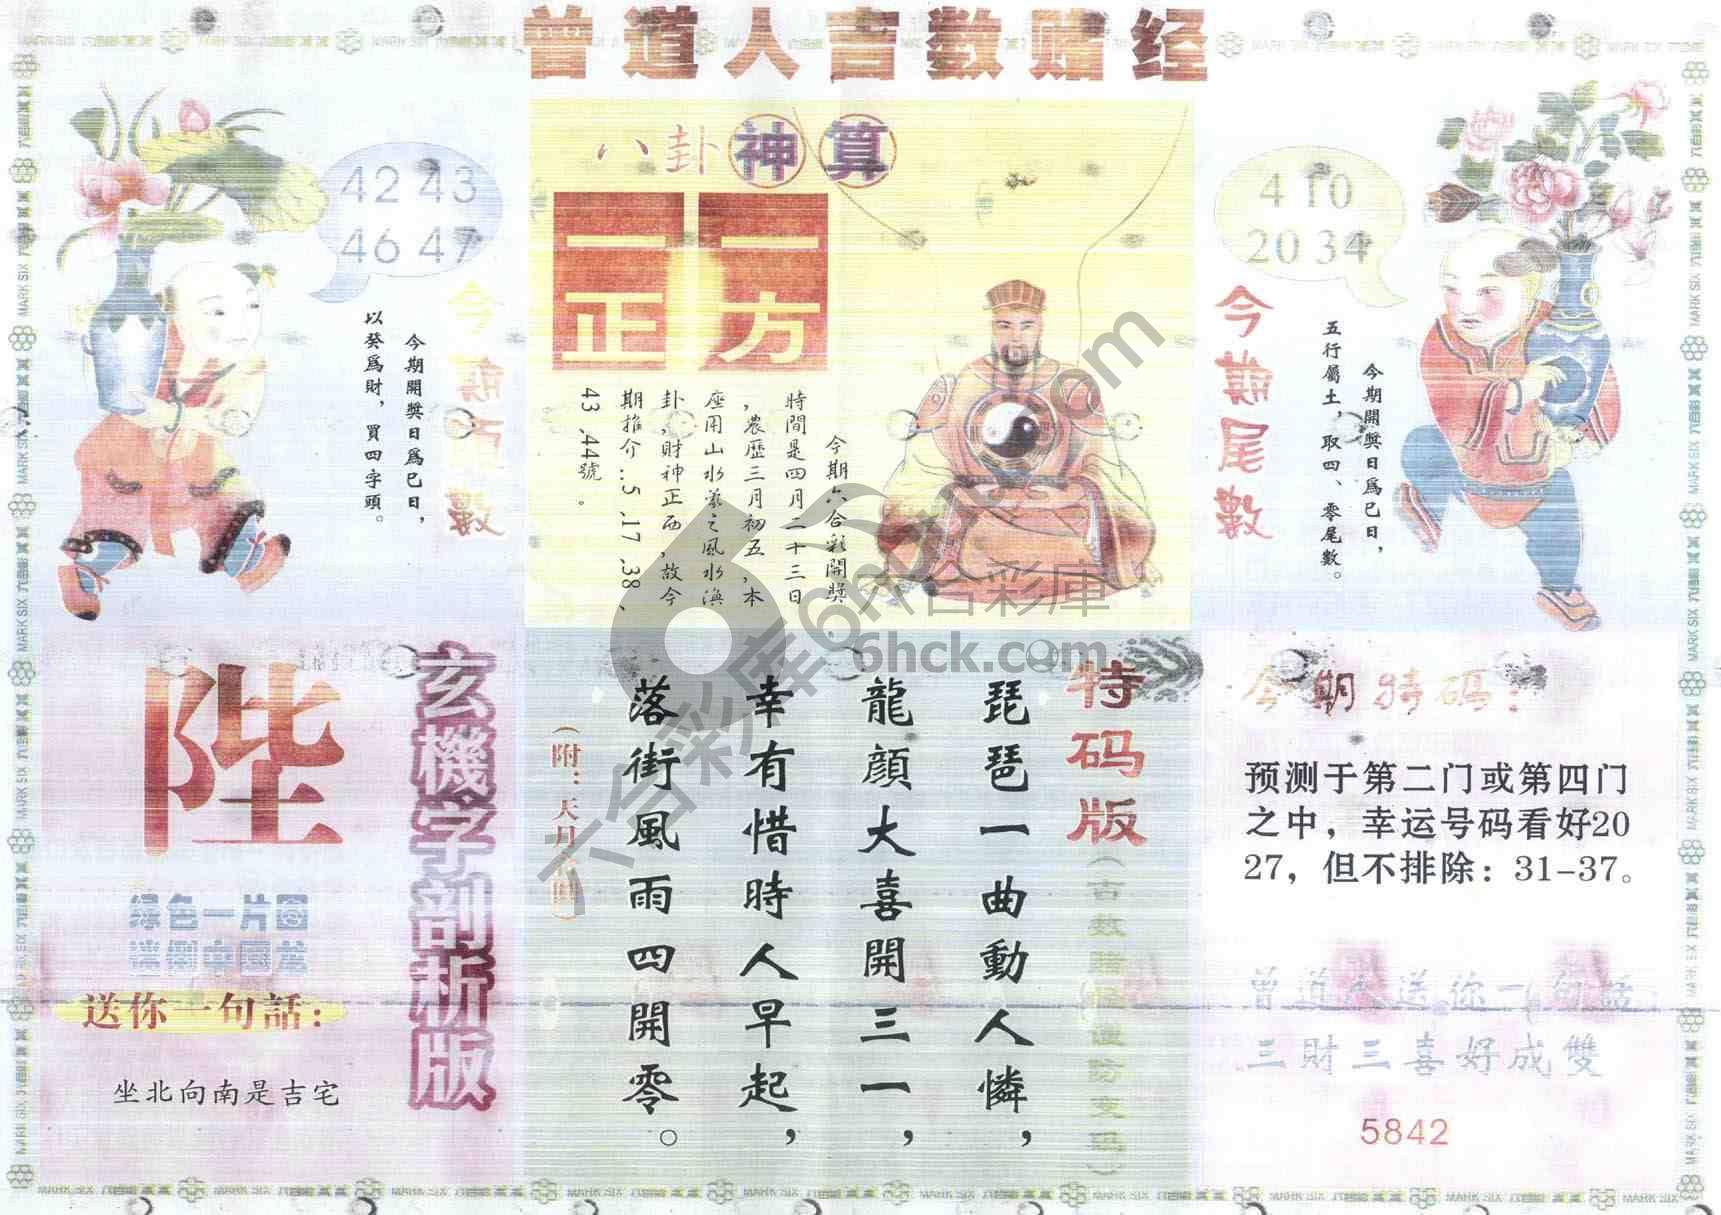 曾道人吉数赌经
八卦神算
42 43
46 47
以癸爲財，買四字頭。
今期開獎日爲巳日，
一正
一方
今期六合彩開獎
時間是四月二十三日
，農歷三月初五，本
座用山水蒙之風水渙
卦，財神正西，故今
期推介..5 .17 .38、
43 .44號。
4 10
20 34
今期尾數
今期開獎日爲巳日，
五行屬土，取四、零尾數。
玄機字剖析版
陛
绿色一片图
送你一句話：
坐北向南是吉宅
特码版
琵琶一曲動人憐，
龍顔大喜開三一，
幸有惜時人早起，
落街風雨四開零。
今期特码：
预测于第二门或第四门
之中，幸运号码看好20
27，但不排除：31-37。
曾道人送你一句話
三財三喜好成雙
5842
六合彩庫
6hck.com
MARK SIX 六合彩